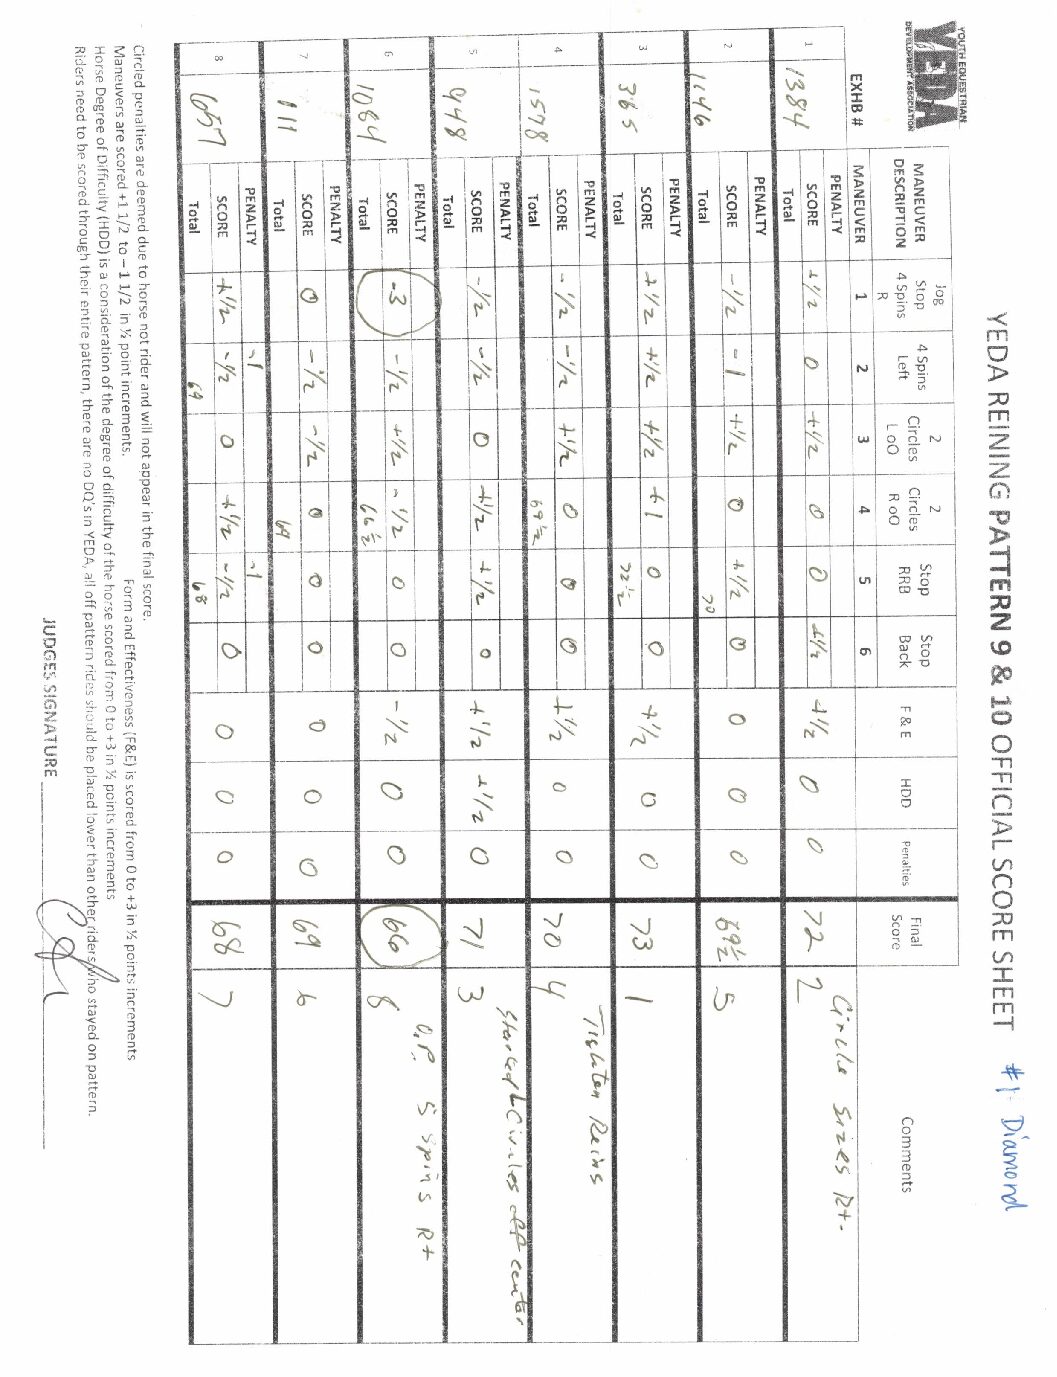 YOUTH EQUESTRIAN
YEDA
DEVELOPMENT ASSOCIATION
YEDA REINING PATTERN 9 & 10 OFFICIAL SCORE SHEET #1 Diamond
MANEUVER DESCRIPTION Jog Stop 4 Spins R 4 Spins Left 2 Circles L oO 2 Circles R oO Stop RRB Stop Back F & E HDD Penalties Final Score Comments
EXHB # MANEUVER 1 2 3 4 5 6
1 1384 PENALTY
SCORE +1/2 0 +1/2 0 0 +1/2 +1/2 0 0 72 2 Circle sizes R+.
Total
2 1146 PENALTY
SCORE -1/2 -1 +1/2 0 +1/2 0 0 0 0 69½ 5
Total 70
3 365 PENALTY
SCORE +1/2 +1/2 +1/2 +1 0 0 +1/2 0 0 73 1
Total 72½
4 1578 PENALTY
SCORE -1/2 -1/2 +1/2 0 0 0 +1/2 0 0 70 4 Tighten Reins
Total 69½
5 948 PENALTY
SCORE -1/2 -1/2 0 +1/2 +1/2 0 +1/2 +1/2 0 71 3 Started L Circles off center
Total
6 1084 PENALTY
SCORE -3 -1/2 +1/2 -1/2 0 0 -1/2 0 0 66 8 O.P. 5 spins R+
Total 66½
7 111 PENALTY
SCORE 0 -1/2 -1/2 0 0 0 0 0 0 69 6
Total 69
8 657 PENALTY -1 -1
SCORE +1/2 -1/2 0 +1/2 -1/2 0 0 0 0 68 7
Total 69 68
Circled penalties are deemed due to horse not rider and will not appear in the final score.
Maneuvers are scored +1 1/2 to -1 1/2 in ½ point increments. Form and Effectiveness (F&E) is scored from 0 to +3 in ½ points increments
Horse Degree of Difficulty (HDD) is a consideration of the degree of difficulty of the horse scored from 0 to +3 in ½ points increments
Riders need to be scored through their entire pattern, there are no DQ's in YEDA, all off pattern rides should be placed lower than other riders who stayed on pattern.
JUDGES SIGNATURE